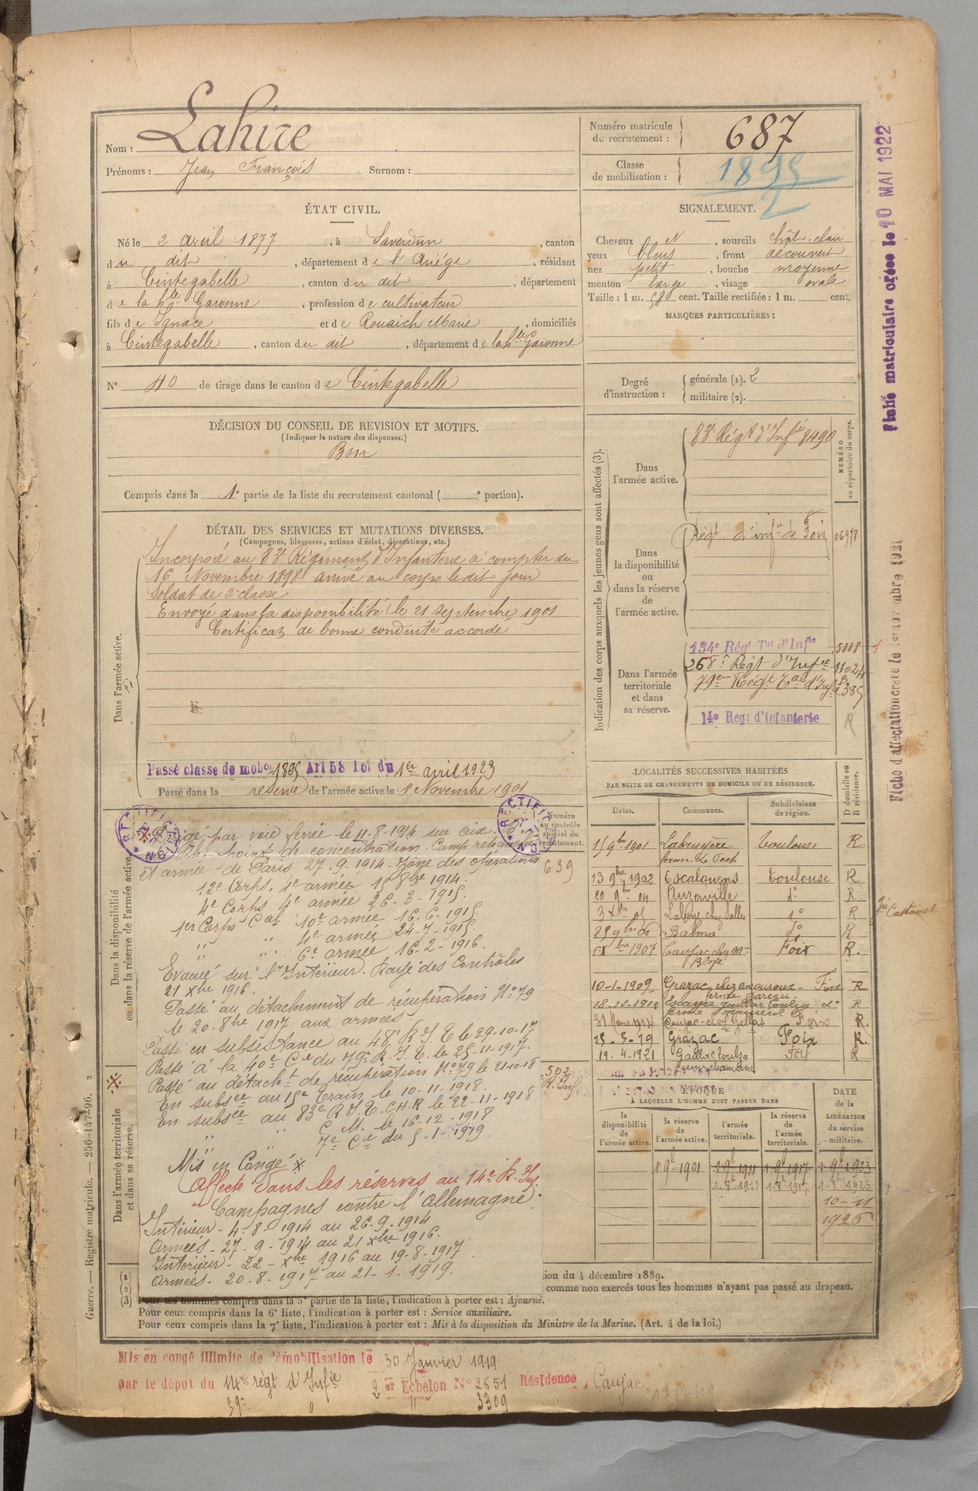 Nom : Lahire
Prénoms : Jean François Surnom :
Numéro matricule du recrutement : 687
Classe de mobilisation : 1895
2
ÉTAT CIVIL.
Né le 2 avril 1877, à Saverdun, canton
du dit, département de l'Ariège, résidant
à Cintegabelle, canton du dit, département
de la Hte Garonne, profession de cultivateur
fils de Ignace et de Rouaich Marie, domiciliés
à Cintegabelle, canton du dit, département de la Hte Garonne
N° 40 de tirage dans le canton de Cintegabelle
SIGNALEMENT.
Cheveux et, sourcils chât. clair
yeux bleus, front découvert
nez petit, bouche moyenne
menton large, visage ovale
Taille : 1 m. cent. Taille rectifiée : 1 m. cent.
MARQUES PARTICULIÈRES :
Degré d'instruction : générale (1). 2
militaire (2).
DÉCISION DU CONSEIL DE REVISION ET MOTIFS.
(Indiquer la nature des dispenses.)
Bon
Compris dans la 1e partie de la liste du recrutement cantonal ( e portion).
DÉTAIL DES SERVICES ET MUTATIONS DIVERSES.
(Campagnes, blessures, actions d'éclat, décorations, etc.)
Dans l'armée active.
Incorporé au 83e Régiment d'Infanterie à compter du
16 Novembre 1898 arrivé au corps le dit jour
Soldat de 2e classe
Envoyé dans la disponibilité le 21 septembre 1901
Certificat de bonne conduite accordé
Passé classe de mobon 1895 Art 58 loi du 1er avril 1923
Passé dans la réserve de l'armée active le 1 Novembre 1901
Indication des corps auxquels les jeunes gens sont affectés (3).
NUMÉRO au répertoire du corps.
Dans l'armée active.
83e Régt d'Infie 8490
Dans la disponibilité ou dans la réserve de l'armée active.
Régt d'infie de Foix 06978
Dans l'armée territoriale et dans sa réserve.
134e Régt Tal d'Infie
268e Régt d'Infie
79e Régt Tal d'Inf
14e Régt d'Infanterie R
Dans la disponibilité ou dans la réserve de l'armée active.
Dans l'armée territoriale et dans sa réserve.
RECTIFICATION
RECTIFICATION
Numéro au contrôle spécial du recrutement.
639
502
R. Inf.
Dirigé par voie ferrée le 11-8-1914 sur
point de concentration. Camp retranché
et armée de Paris 27.9.1914. Zône des opérations
12e Corps, 4e armée 1 8bre 1914.
4e Corps 4e armée 26.3.1915.
1er Corps Cal 10e armée 16.6.1915
" " 4e armée 24-7-1915.
" " 6e armée 16-2-1916.
Evacué sur l'Intérieur. Rayé des Contrôles
21 Xbre 1916.
Passé au détachement de récupération N° 79
le 20-8bre 1917 aux armées
Passé en subsistance au 48e R.I.T. le 29.10.17
Passé à la 40e Cie du 79e R.I.T. le 25-11-1917.
Passé au détacht de récupération N° 79 le 21-10-18
En subsce au 15e Train le 10-11-1918.
En subsce au 83e R.I.T. C.H.R. le 22-11-1918
" " C.M. le 16-12-1918
" " 7e Cie du 5-1-1919.
Mis en Congé
Affecté dans les réserves au 14e R. Inf.
Campagnes contre l'Allemagne :
Intérieur - 4-8-1914 au 26-9-1914
Armées - 27-9-1914 au 21 Xbre 1916.
Intérieur - 22-Xbre 1916 au 19-8-1917
Armées - 20-8-1917 au 21-1-1919.
LOCALITÉS SUCCESSIVES HABITÉES
PAR SUITE DE CHANGEMENTS DE DOMICILE OU DE RÉSIDENCE.
Dates. Communes. Subdivisions de région. D domicile ou R résidence.
15 9bre 1901 Labruyère Toulouse R
13 9bre 1902 Escalquens Toulouse R
20 9bre 04 Auzerville d° R
3 Xbre 05 d° R
Balma d° R
1907 Foix R.
10-1-1909 Grazac Foix R
18-12-1912 Gaillac Toulza d° R
Caujac Foix R.
25-5-19 Grazac Foix R
19.4.1921 Gaillac Toulza Foix R
ÉPOQUE
À LAQUELLE L'HOMME DOIT PASSER DANS
la disponibilité de l'armée active. la réserve de l'armée active. l'armée territoriale. la réserve de l'armée territoriale. DATE de la LIBÉRATION du service militaire.
1 9bre 1901 1 9bre 1911 1 9bre 1917 1 9bre 1923
10-11
1926
ion du 4 décembre 1889.
comme non exercés tous les hommes n'ayant pas passé au drapeau.
(1)
(2)
(3) Pour les hommes compris dans la 5e partie de la liste, l'indication à porter est : Ajourné.
Pour ceux compris dans la 6e liste, l'indication à porter est : Service auxiliaire.
Pour ceux compris dans la 7e liste, l'indication à porter est : Mis à la disposition du Ministre de la Marine. (Art. 4 de la loi.)
Mis en congé illimité de démobilisation le 30 Janvier 1919
par le dépôt du 14e régt d'Infie 2er Echelon N° 2651 Résidence, Caujac
3309
Guerre. — Registre matricule. — 256-147-96.
Fiche matriculaire créée le 10 MAI 1922